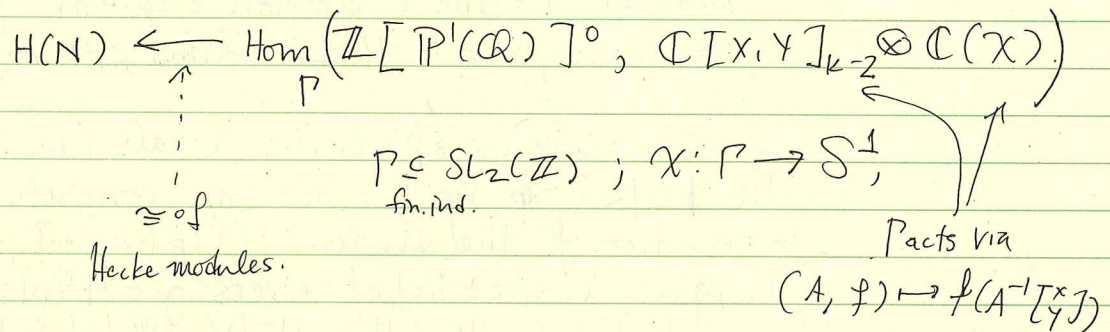 H(N) ← Hom_Γ (ℤ[ℙ¹(ℚ)]⁰, ℂ[X,Y]_{k-2} ⊗ ℂ(χ))
Γ ⊆ SL₂(ℤ) ; χ: Γ → S¹,
fin. ind.
≅ of
Hecke modules.
Γ acts via
(A, f) ↦ f(A⁻¹[x y])